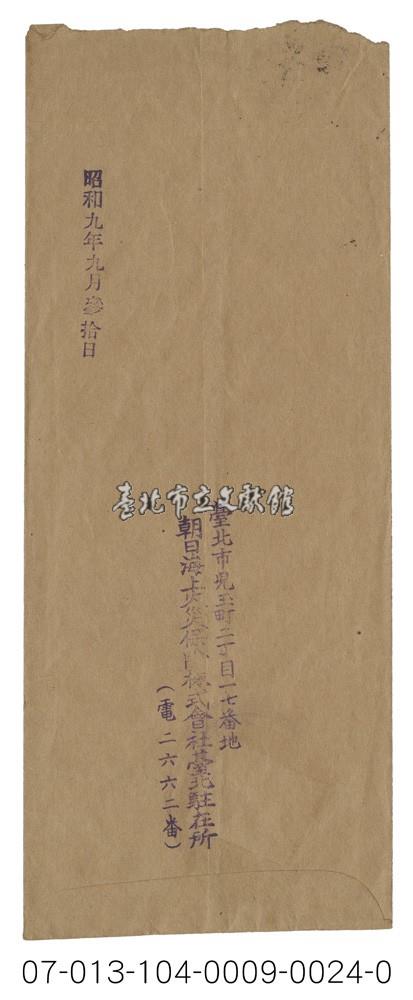 臺北市兒玉町二丁目一七番地
朝日海上火災保險株式會社臺北駐在所
(電二六六二番)
昭和九年九月參拾日
臺北市立文獻館
07-013-104-0009-0024-0